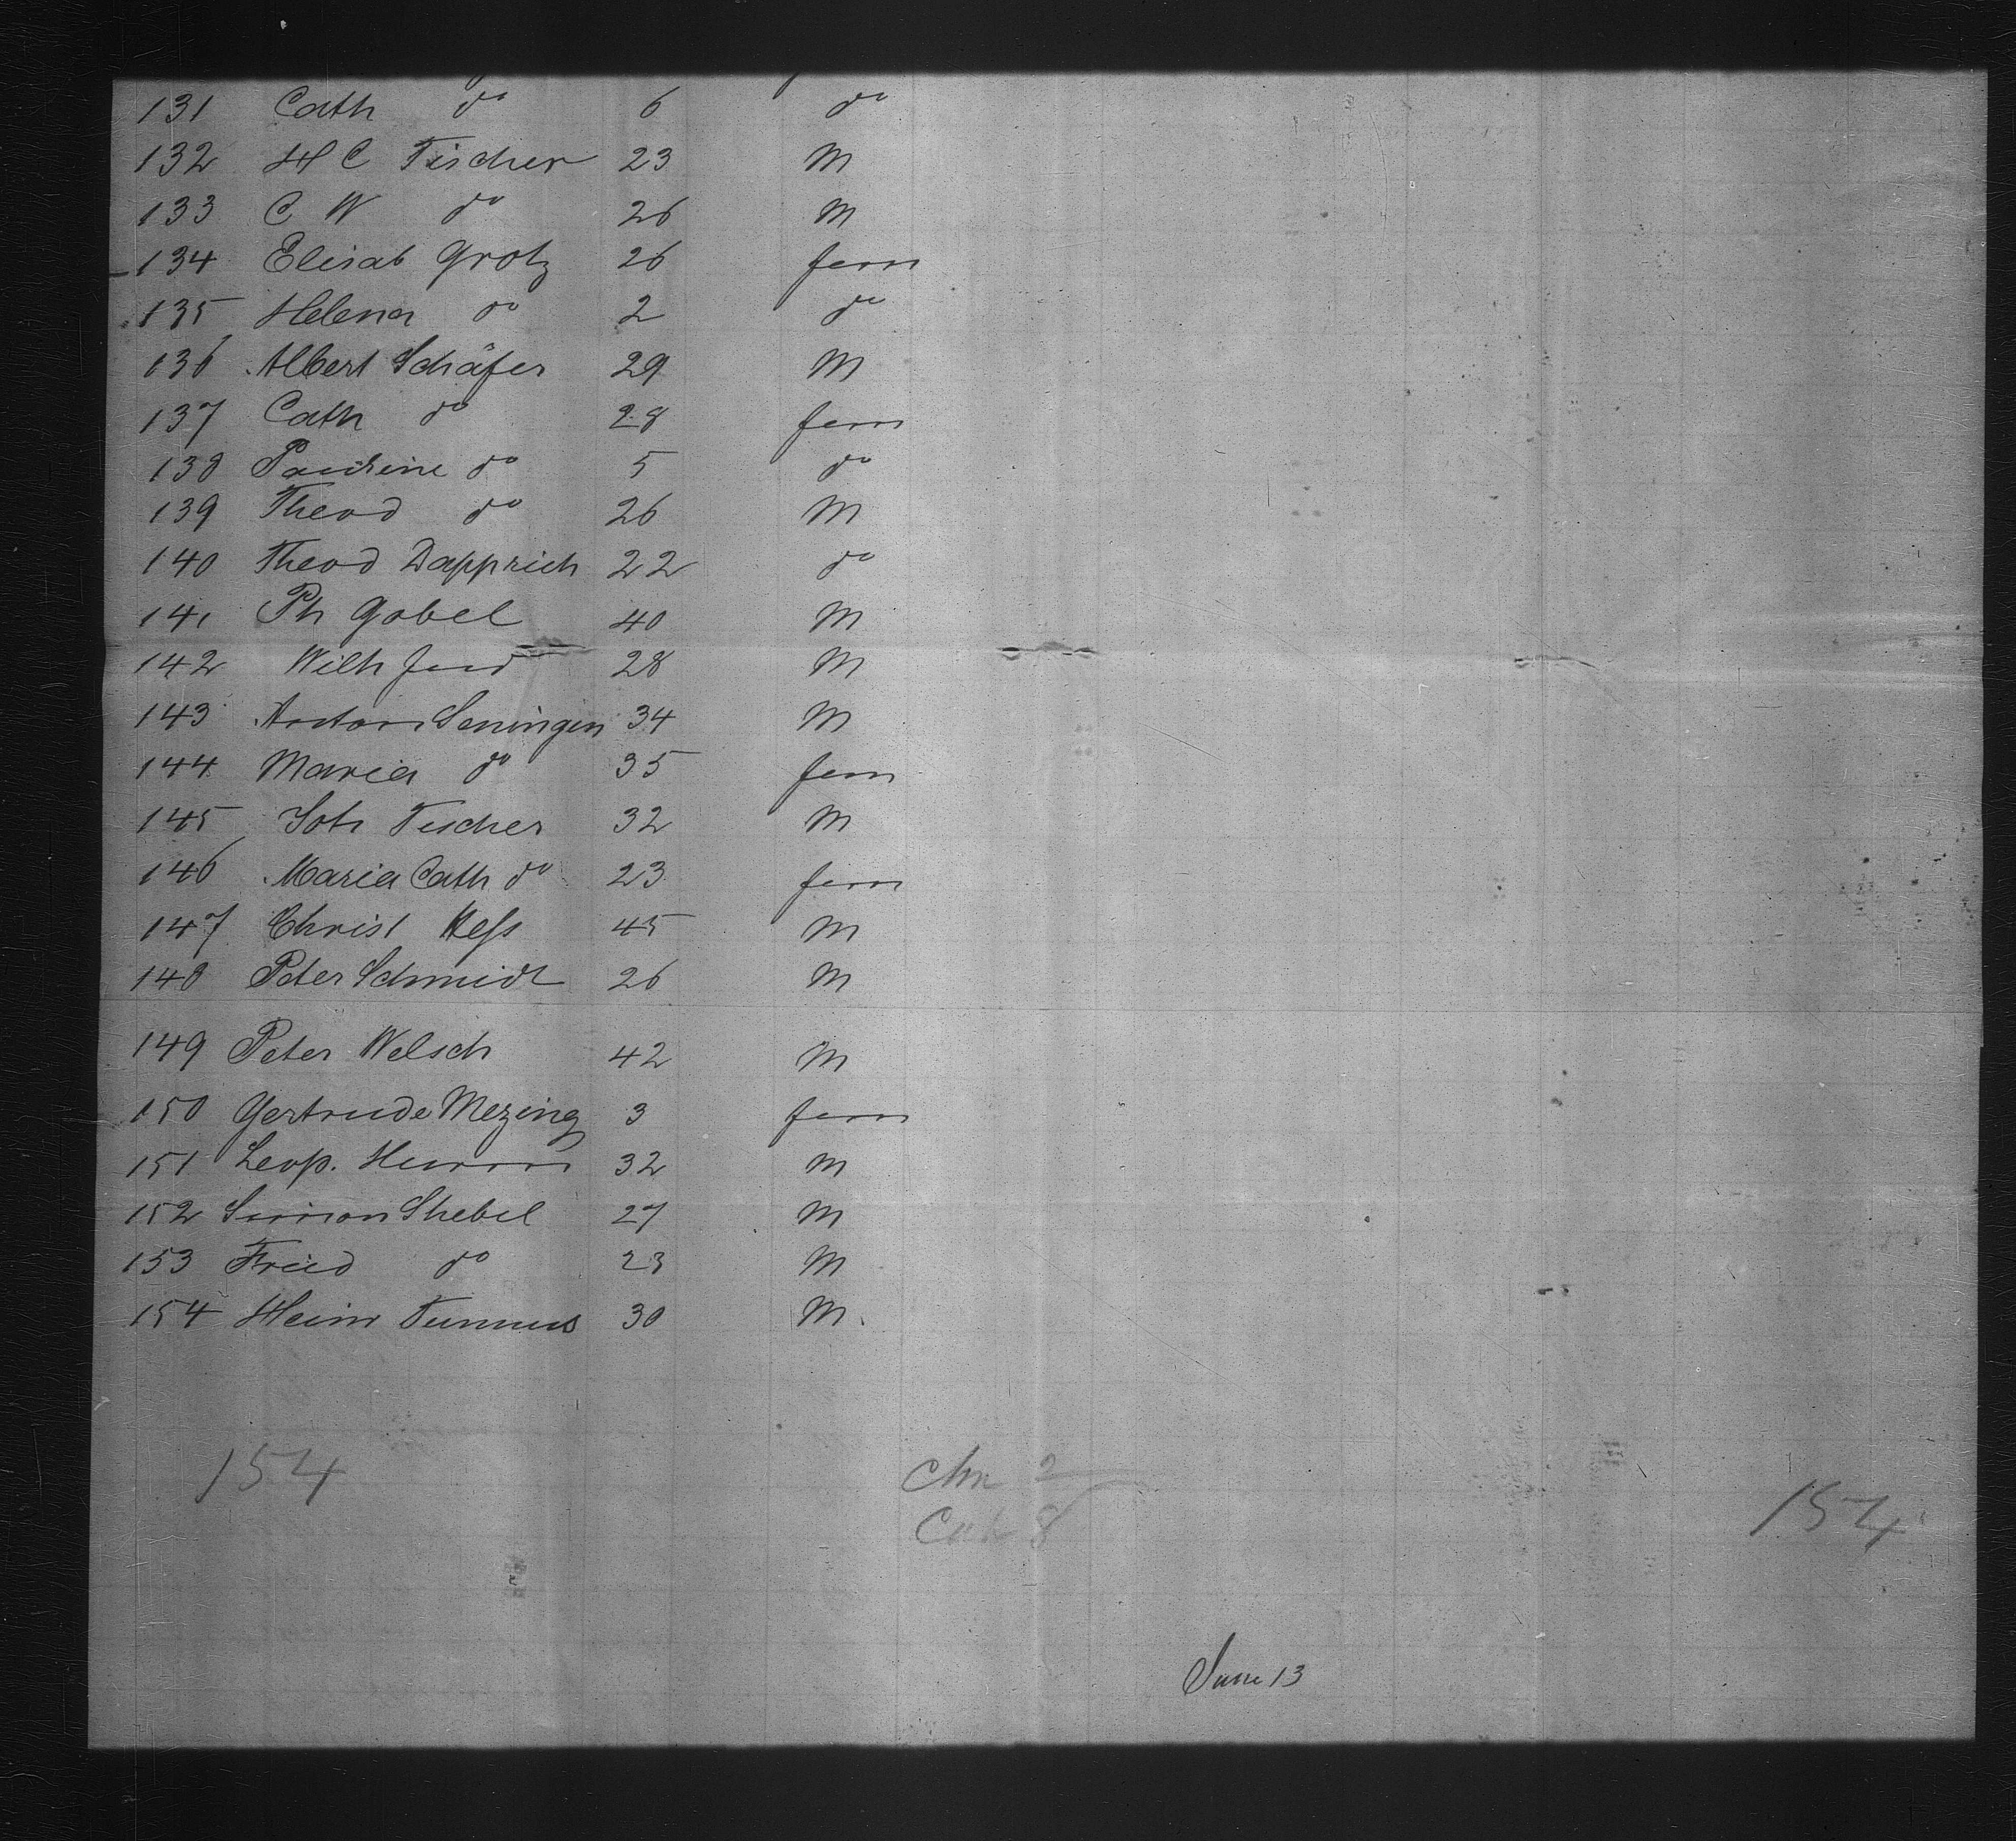 131 Cath do 6 do
132 H C Fischer 23 M
133 C W do 26 M
134 Elisab Grotz 26 fem
135 Helena do 2 do
136 Albert Schäfer 29 M
137 Cath do 28 fem
138 Pauline do 5 do
139 Theod do 26 M
140 Theod Dapprich 22 do
141 Ph Gobel 40 M
142 Wilh 28 M
143 Anton Seningen 34 M
144 Maria do 35 fem
145 Joh Fischer 32 M
146 Maria Cath do 23 fem
147 Christ Hess 45 M
148 Peter Schmidt 26 M
149 Peter Welsch 42 M
150 Gertrude Mezing 3 fem
151 Leop. 32 M
152 Simon Strebel 27 M
153 Fried do 23 M
154 Heinr 30 M.
154
2
Cab 8
154
June 13